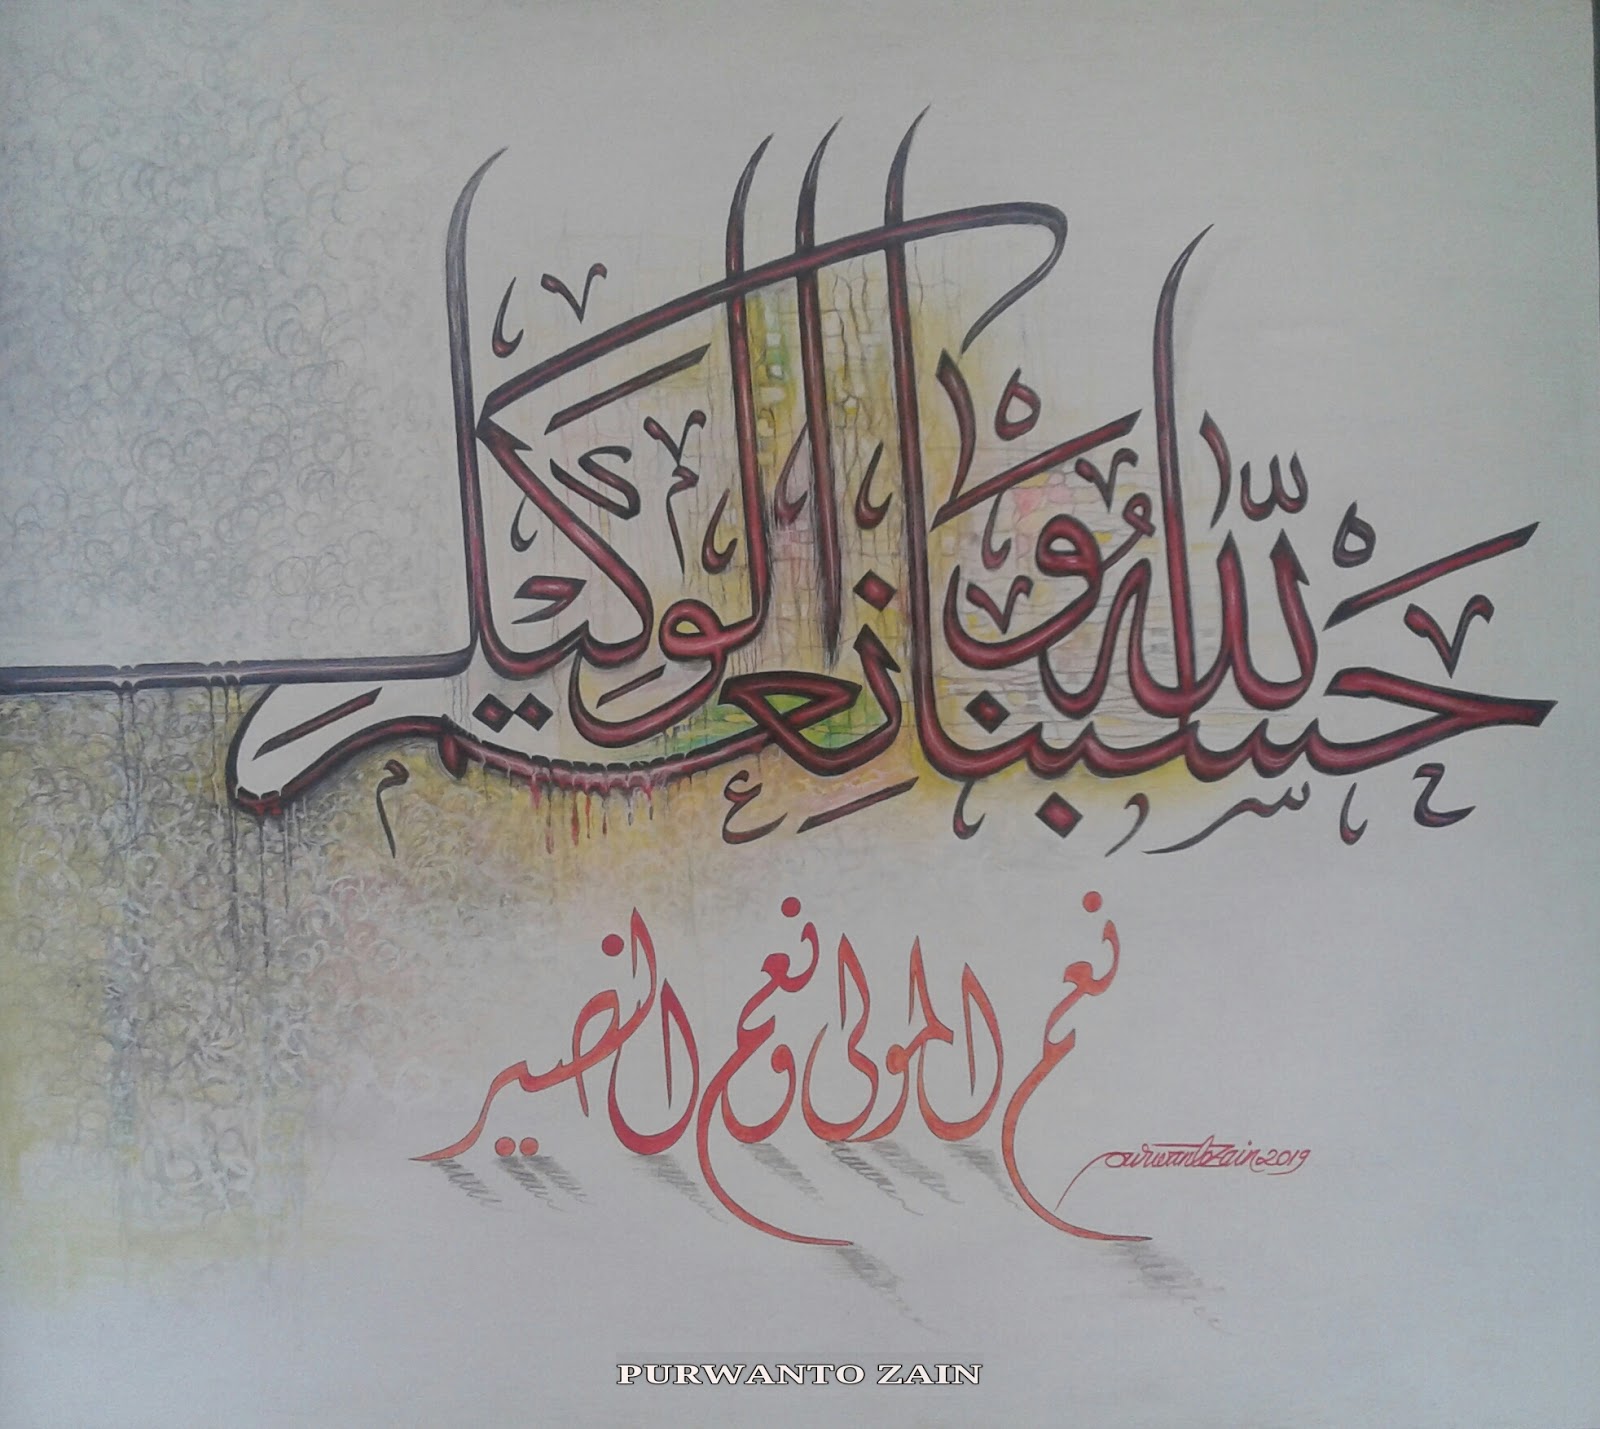 حسبنا الله ونعم الوكيل
نعم المولى ونعم النصير
purwantozain2019
PURWANTO ZAIN